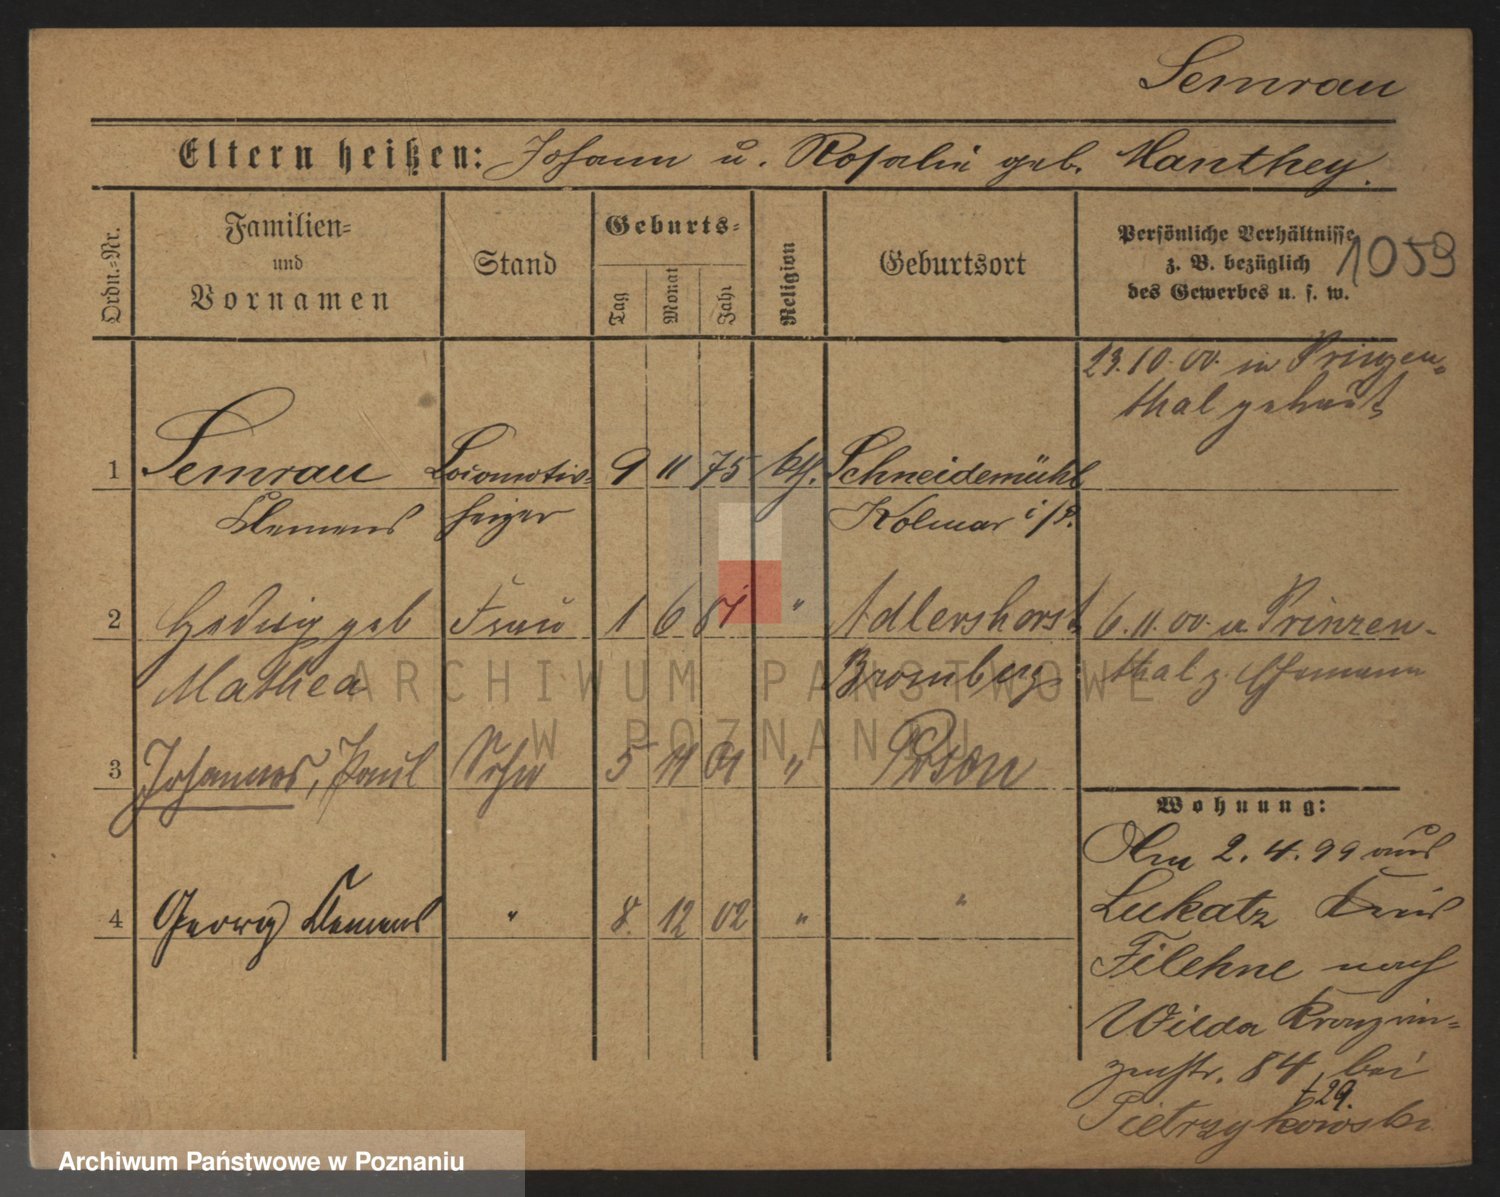 Semrau
Eltern heißen: Johann u. Rosalie geb. Manthey.
Ordn.-Nr.
Familien-
und
Vornamen
Stand
Geburts-
Tag
Monat
Jahr
Religion
Geburtsort
Persönliche Verhältnisse
z. B. bezüglich
des Gewerbes u. s. w.
1059
23.10.00. in Prinzen-
thal getraut
1 Semrau Locomotiv- 9 11 75 kth. Schneidemühl
Clemens heizer Kolmar i/P.
2 Hedwig geb Frau 1 6 81 " Adlershorst 6.11.00. a. Prinzen-
Mathea Bromberg thal z. Ehemann
3 Johannes, Paul Sohn 5 11 01 " Posen
Wohnung:
Am 2.4.99 aus
4 Georg Clemens " 8. 12 02 " " Lukatz Kreis
Filehne nach
Wilda Kronprin-
zenstr. 84, bei
t 29.
Pietrzykowski
ARCHIWUM PAŃSTWOWE
W POZNANIU
Archiwum Państwowe w Poznaniu